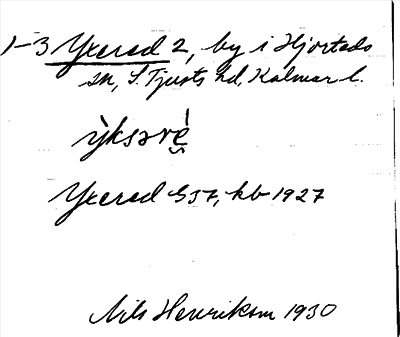 1-3 Yxered 2, by i Hjorteds
sn, S. Tjusts hd, Kalmar l.
ỳksəré
Yxered G57, kb 1927
Nils Henrikson 1930